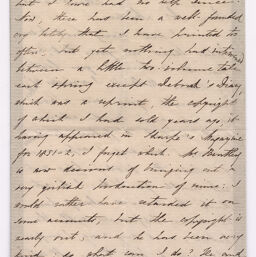 but I have had no
Now, there has been a well founded
that I have
often. but yet nothing had
between a little volume
each spring except Deborah's Diary,
which was a reprint, the copyright
of which I had sold years ago, it
having appeared in Sharpe's Magazine
for 1851-2, I forget which. Mr. Bentley
is now desirous of bringing out a
very girlish production of mine: I
would rather have retarded it on
some accounts, but the copyright is
nearly out, and he has been very
kind, so what can I do? He and